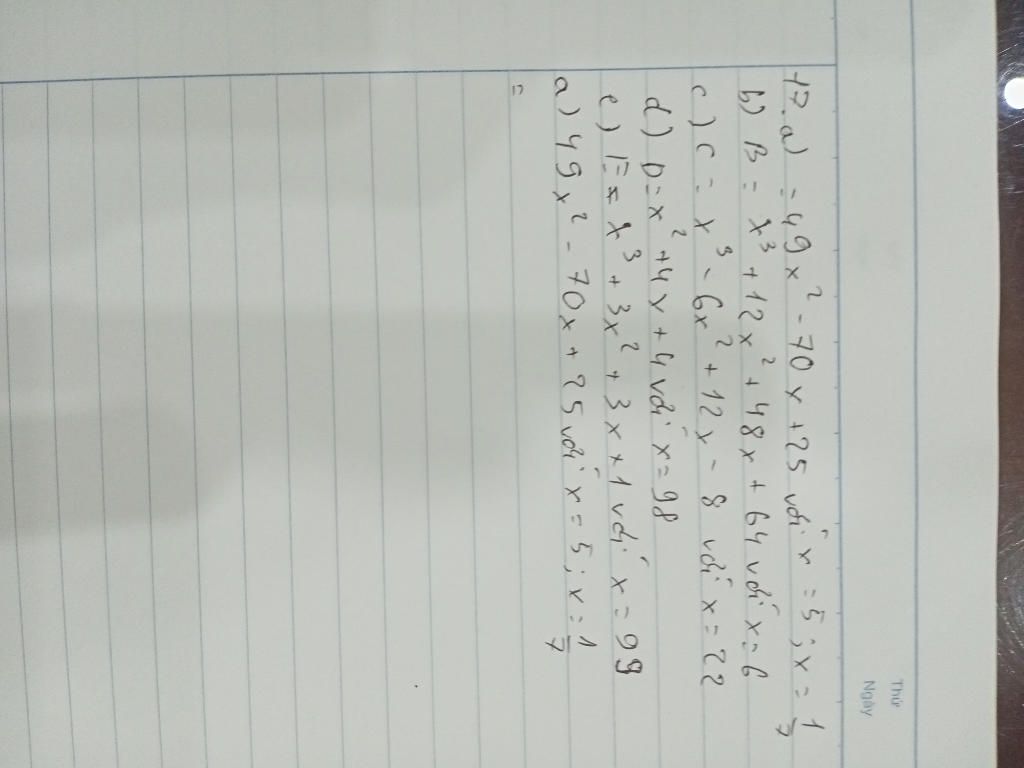 Thứ
Ngày
17. a) = 49x² - 70x + 25 với x = 5 ; x = 1/7
b) B = x³ + 12x² + 48x + 64 với x = 6
c) C = x³ - 6x² + 12x - 8 với x = 22
d) D = x² + 4x + 4 với x = 98
e) E = x³ + 3x² + 3x + 1 với x = 99
a) 49x² - 70x + 25 với x = 5 ; x = 1/7
=